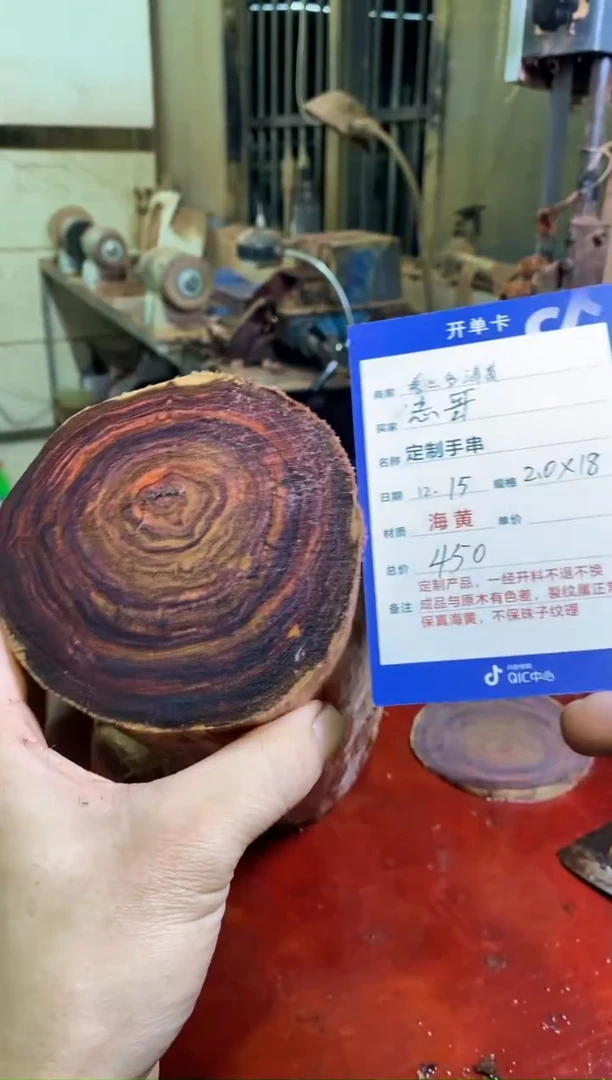 开单卡
商家
买家 志哥
名称 定制手串
日期 12.15 规格 2.0X18
材质 海黄 单价
总价 450
定制产品，一经开料不退不换
备注 成品与原木有色差，裂纹属正常
保真海黄，不保珠子纹理
QIC中心